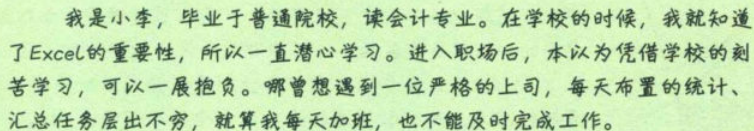 我是小李，毕业于普通院校，读会计专业。在学校的时候，我就知道
了Excel的重要性，所以一直潜心学习。进入职场后，本以为凭借学校的刻
苦学习，可以一展抱负。哪曾想遇到一位严格的上司，每天布置的统计、
汇总任务层出不穷，就算我每天加班，也不能及时完成工作。